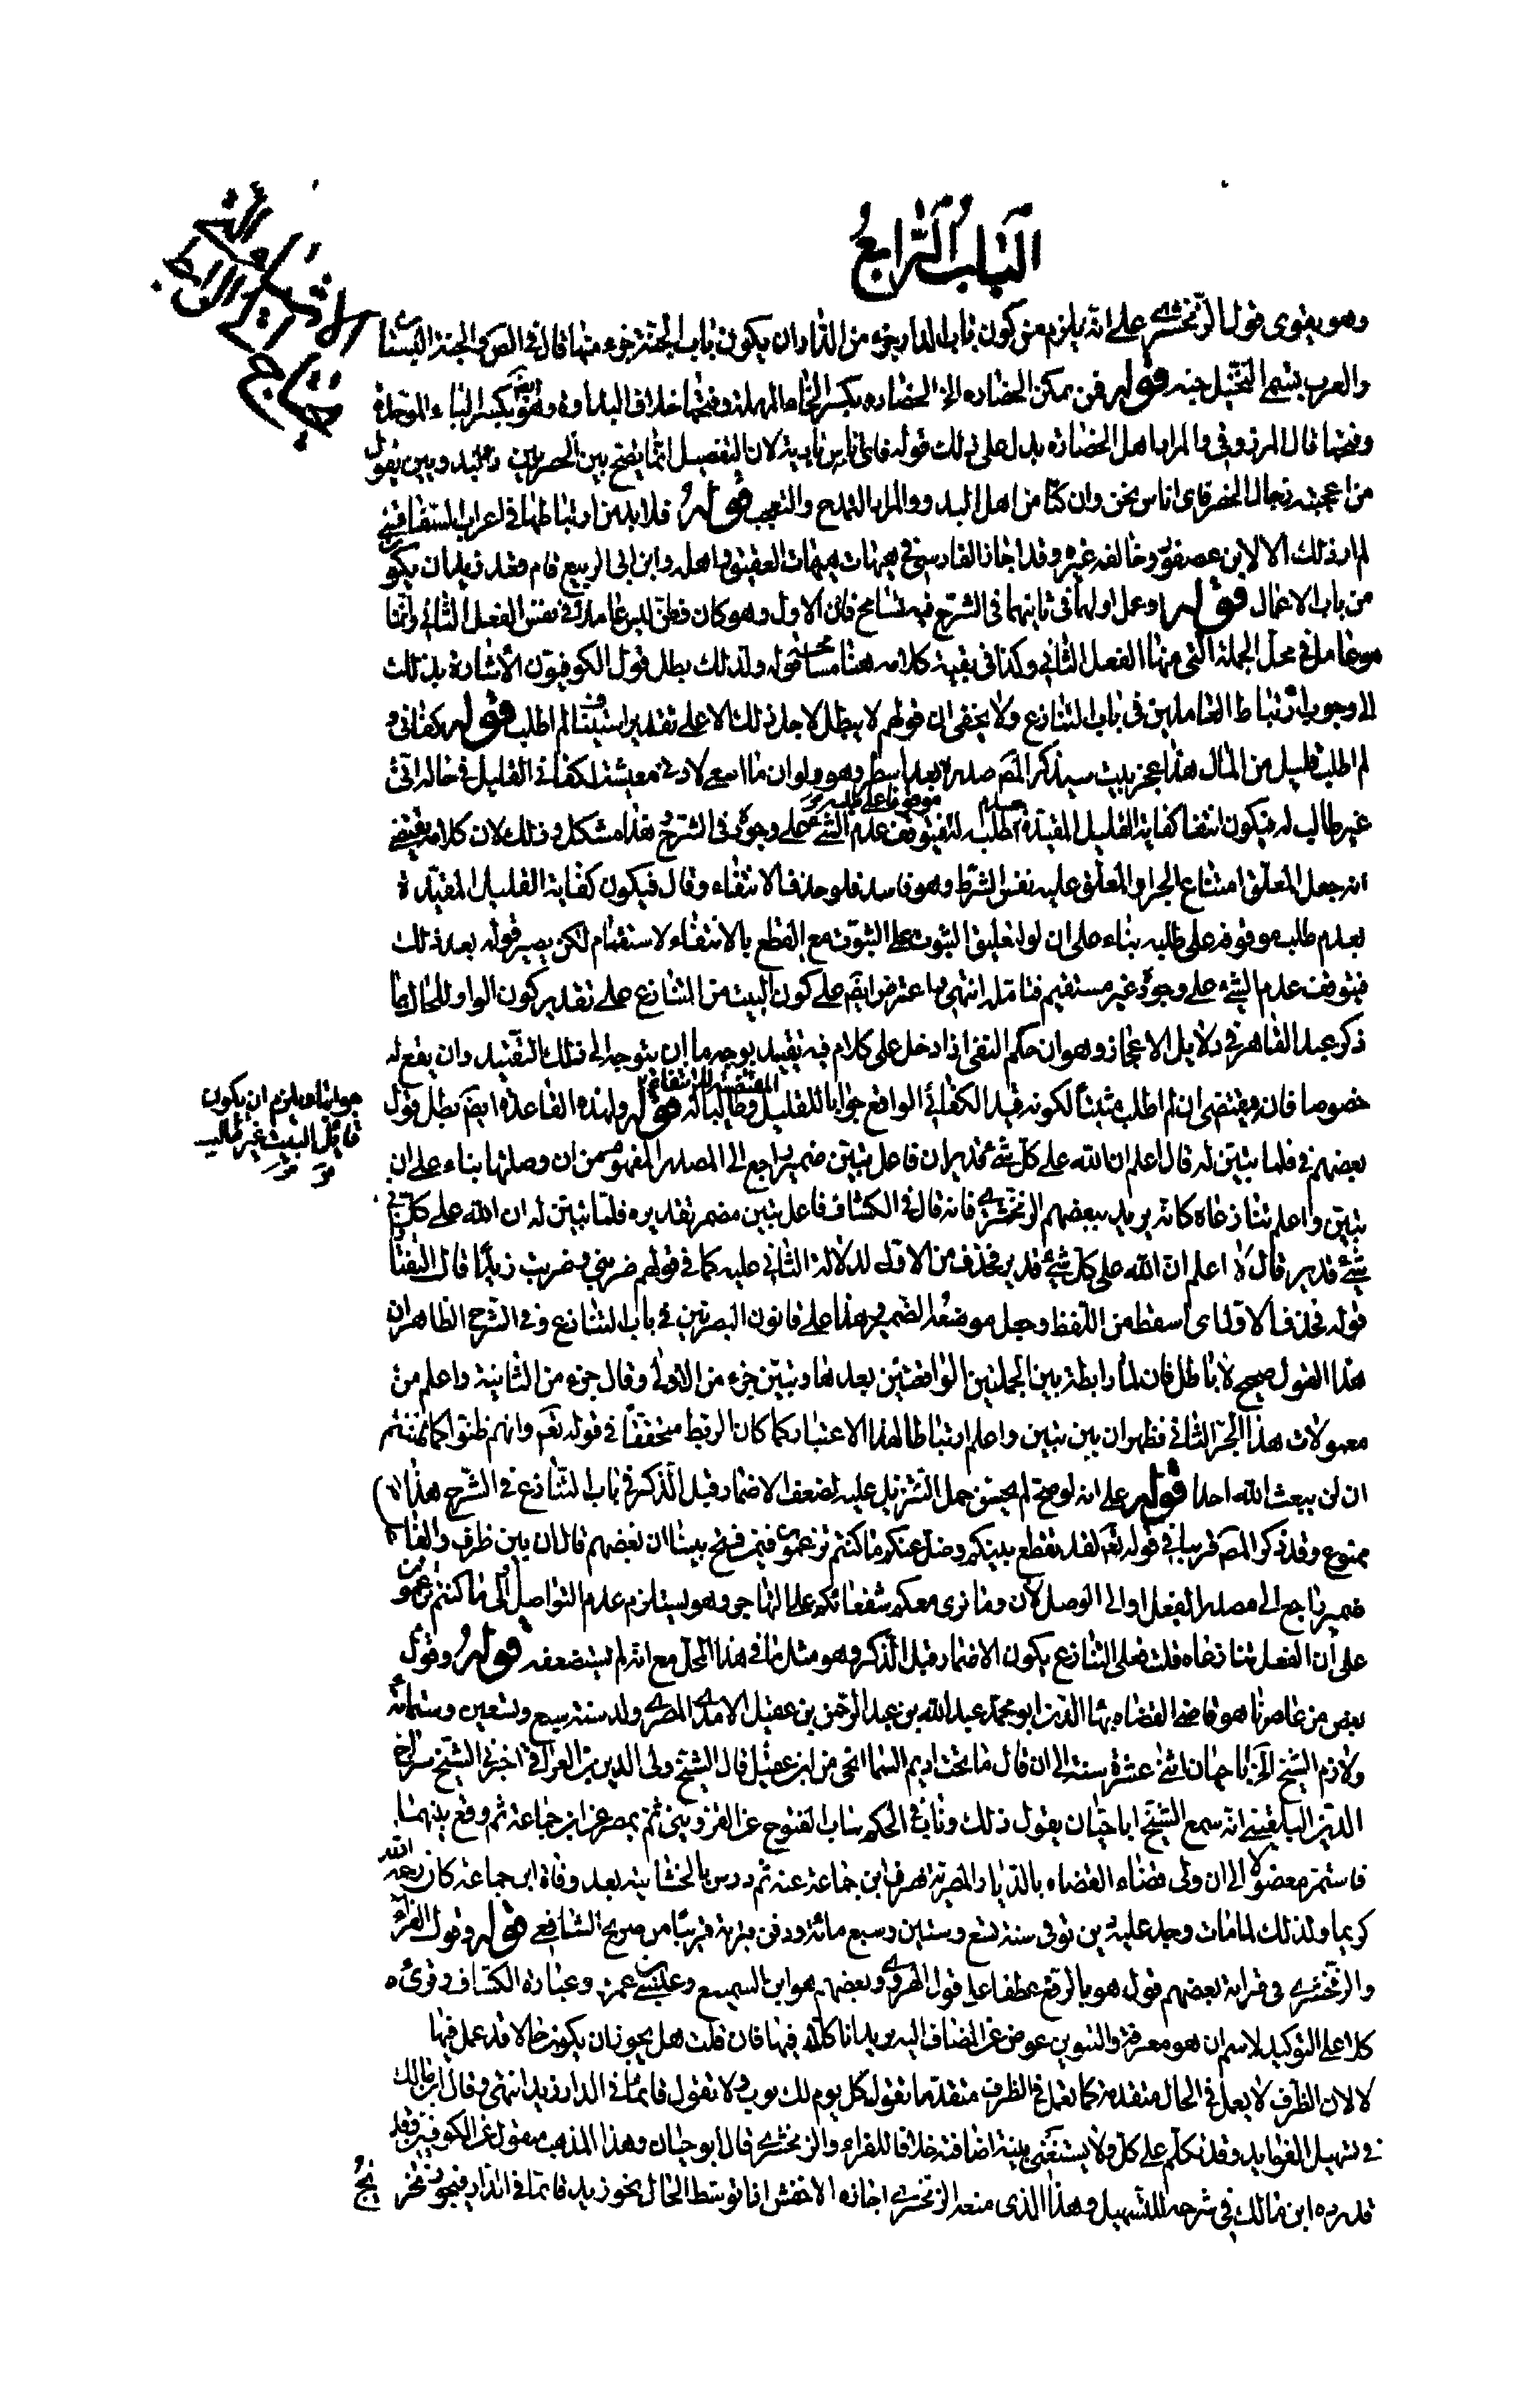 الباب الرابع
وهو يقوى قول الزمخشري على انه يلزم من كون باب الدار جزء من الدار ان يكون باب الجنة جزء منها قال في الص والجنة البستان
والعرب تسمى النخيل جنه قوله فمن يمكن الحضاره الخ الحضاره بكسر الحاء المهملة وفتحها خلاف البداوة وهو ايضا بكسر الباء الموحدة
وفتحها قال المرزوقي والمراد اهل الحضارة يدل على ذلك قوله فاى ناس بادية لان التفصيل انما يصح بين الحضريين والبيد وبين يقول
من اعجبته رجال الحضر فاى اناس نحن وان كنا من اهل البدو والمراد التمدح والتعجب قوله فلا بد من ارتباطها في اعراب السفاقسي
لم ار ذلك الا لابن عصفور وخالفه غيره وقد اجاز الفارسي في هيهات هيهات العقيق واهله وابن ابى الربيع قام وقعد زيد ان يكون
من باب الاعمال قوله او عمل اولهما في ثانيهما في الشرح فيه تسامح فان الاول وهو كان في ظن ليس عاملا في نفس الفعل الثاني وانما
هو عامل في محل الجملة التي منها الفعل الثاني وكذا في بقية كلامه هنا مسامحة قوله ولذلك بطل قول الكوفيون الاشارة بذلك
الى وجوب ارتباط العاملين في باب التنازع ولا يخفى ان قولهم لا يبطل لاجل ذلك الا على تقدير استيناف لم اطلب قوله كفاني و
لم اطلب قليل من المال هذا عجز بيت سيذكر المص صدره بعد اسطر وهو ولو ان ما اسعى لادنى معيشة لكفاني القليل في حالة اني
غير طالب له فيكون انتفا كفاية القليل المقيدة بعدم طلبه موقوفا على طلبه فيتوقف عدم الشيء على وجوده في الشرح هذا مشكل وذلك لان كلامه يقتضى
انه جعل المعلق امتناع الجزا والمعلق عليه نفس الشرط وهو فاسد فلو حذف الانتفاء وقال فيكون كفاية القليل المقيدة
بعدم طلبه موقوفة على طلبه بناء على ان لو لتعليق الثبوت على الثبوت مع القطع بالانتفاء لاستقام لكن يصير قوله بعد ذلك
فيتوقف عدم الشيء على وجوده غير مستقيم فتامله انتهى واعترض ايضم على كون البيت من التنازع على تقدير كون الواو للحال بما
ذكر عبد القاهر في دلايل الاعجاز وهو ان حكم النفى اذا دخل على كلام فيه تقييد بوجه ما ان يتوجه الى ذلك التقييد وان يقع له
خصوصا فان مقتضى ان لم اطلب مثبتا لكونه قيد الكفاني الواقع جوابا للو المقتضية للانتفا قوله ولهذه القاعدة ايضم بطل قول
جوابا وبلزم ان يكون
قايل البيت غير طالب
بعضهم في فلما تبين له قال اعلم ان الله على كل شئ قدير ان فاعل تبين ضمير راجع الى المصدر المفهوم من ان وصلتها بناء على ان
تبين واعلم تنازعاه كانه يريد ببعضهم الزمخشري فانه قال في الكشاف فاعل تبين مضمر تقديره فلما تبين له ان الله على كل
شئ قدير قال اعلم ان الله على كل شئ قدير فحذف من الاول لدلالة الثاني عليه كما في قولهم ضربني وضربت زيدا قال التفتا
قوله فحذف الاول اى اسقط من اللفظ وجعل موضعه الضمير وهذا على قانون البصريين في باب التنازع وفي الشرح الظاهر ان
هذا القول صحيح لا باطل فان لما رابطة بين الجملتين الواقعتين بعدها وتبين جزء من الاولى وقال جزء من الثانية واعلم من
معمولات هذا الجزء الثاني فظهر ان بين تبين واعلم ارتباطا لهذا الاعتبار كما كان الربط متحققا في قوله تعم وانهم ظنوا كما ظننتم
ان لن يبعث الله احدا قوله على انه لو صح لم يحسن حمل التنزيل عليه لضعف الاضمار قبل الذكر في باب التنازع في الشرح هذا
ممنوع وقد ذكر المص قريبا في قوله تعم لقد تقطع بينكم وضل عنكم ما كنتم تزعمون فيمن فتح بينا ان بعضهم قال ان بين ظرف والفاعل
ضمير راجع الى مصدر الفعل او الى الوصل لان وما نرى معكم شفعائكم على التهاجر وهو يستلزم عدم التواصل الى ما كنتم تزعمون
على ان الفعل تنازعاه قلت فعلى التنازع يكون الاضمار قبل الذكر وهو مثل ما في هذا المحل مع انه لم يستضعفه قوله وقول
بعض من عاصرنا هو قاضى القضاه بهاء الدين ابو محمد عبد الله بن عبد الرحمن بن عقيل الامدى المصرى ولد سنة سبع وتسعين وستمائة
ولازم الشيخ ابا حيان اثنى عشرة سنة الى ان قال ما تحت اديم السما انحى من ابن عقيل قال الشيخ ولى الدين بن العراقي اخبرني الشيخ سراج
الدين البلقيني انه سمع الشيخ ابا حيان يقول ذلك وناب في الحكم بباب الفتوح عن القزويني ثم بمصر عن ابن جماعة ثم وقع بينهما
فاستمر معزولا الى ان ولى قضاء القضاه بالديار المصرية فصرف ابن جماعة عنه ثم درس بالخشابية بعد وفاة ابن جماعة كان رحمه الله
كريما ولذلك لما مات وجد عليه دين توفى سنة تسع وستين وسبع مائة ودفن بتربة قريبا من ضريح الشافعى قوله وقول الفراء
والزمخشري في قراءة بعضهم قول هو بالرفع عطفا على قول المهدوي وبعضهم هو ابن السميفع وعيسى بن عمر وعبارة الكشاف وقرئ
كلا على التوكيد لاسم ان هو معرفة والتنوين عوض عن المضاف اليه يريد انا كلنا فيها فان قلت هل يجوز ان يكون حالا قد عمل فيها
لا لان الظرف لا يعمل في الحال متقدمة كما يعمل في الظرف متقدما تقول كل يوم لك ثوب ولا تقول قائما في الدار زيد انتهى وقال ابن مالك
في تسهيل الفوايد وقد تكلم على كل ولا يستغنى بنية اضافته خلافا للفراء والزمخشري قال ابو حيان وهذا المذهب منقول عن الكوفيين وقد
قد رده ابن مالك في شرحه للتسهيل وهذا الذى منعه الزمخشري اجازه الاخفش اذا توسط الحال نحو زيد قائما في الدار فيجوز